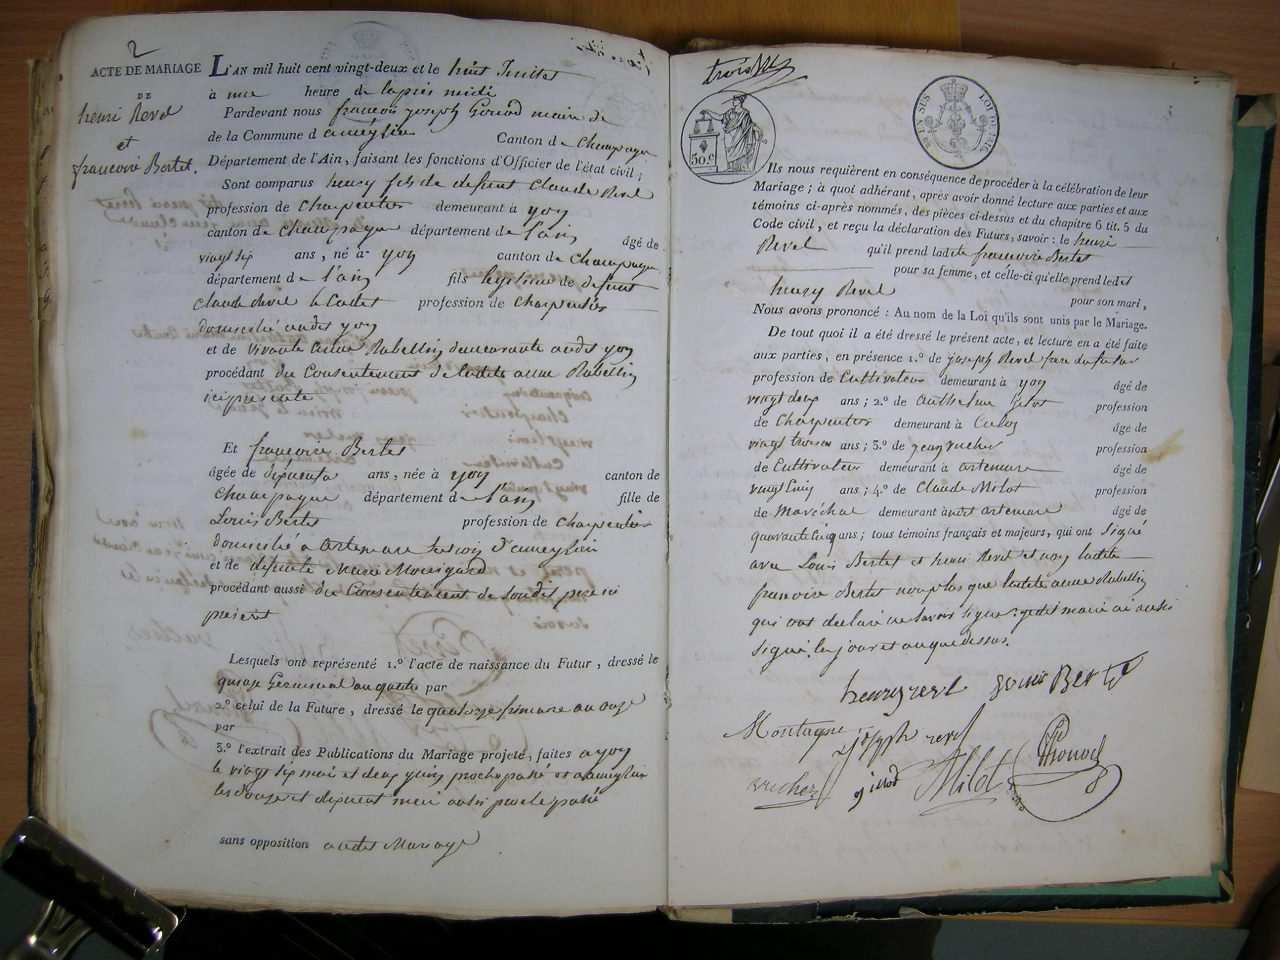 2
ACTE DE MARIAGE
DE
henri Revel
et
francoise Bertet.
L'AN mil huit cent vingt-deux et le huit Juillet
à une heure de la près midi
Pardevant nous françois joseph maire de
de la Commune d'ameyzieu Canton de Champagne
Département de l'Ain, faisant les fonctions d'Officier de l'état civil ;
Sont comparus henry fils de defunt Claude Revel
profession de Charpentier demeurant à yon
canton de Champagne département de l'ain âgé de
vingt six ans, né à yon canton de Champagne
département de l'ain fils legitime de defunt
Claude Revel le Cadet profession de Charpentier
domicilié audit yon
et de vivante anne Rabellin demeurante audit yon
procédant du Consentement de ladite anne Rabellin
ici presente
Et francoise Bertet
âgée de ans, née à yon canton de
Champagne département de l'ain fille de
Louis Bertet profession de Charpentier
domicilié a artemare d'ameyzieu
et de defunte Marie
procédant aussi du Consentement de sondit pere ici
present
Lesquels ont représenté 1.° l'acte de naissance du Futur, dressé le
germinal an quatre par
2.° celui de la Future, dressé le quatorze frimaire an onze
par
3.° l'extrait des Publications du Mariage projeté, faites a yon
le vingt six mai et deux juin proche passé et a ameyzieu
les douze et dix neuf mai aussi proche passé
sans opposition audit Mariage
trois
50.c
Ils nous requièrent en conséquence de procéder à la célébration de leur
Mariage ; à quoi adhérant, après avoir donné lecture aux parties et aux
témoins ci-après nommés, des pièces ci-dessus et du chapitre 6 tit. 5 du
Code civil, et reçu la déclaration des Futurs, savoir : le henri
Revel qu'il prend ladite francoise Bertet
pour sa femme, et celle-ci qu'elle prend ledit
henry Revel pour son mari,
Nous avons prononcé : Au nom de la Loi qu'ils sont unis par le Mariage.
De tout quoi il a été dressé le présent acte, et lecture en a été faite
aux parties, en présence 1.° de joseph Revel frere du futur
profession de Cultivateur demeurant à yon âgé de
vingt deux ans ; 2.° de anthelme profession
de Charpentier demeurant à Culoz âgé de
vingt trois ans ; 3.° de jean vucher profession
de Cultivateur demeurant à artemare âgé de
vingt cinq ans ; 4.° de Claude Milot profession
de Maréchal demeurant à artemare âgé de
quarante cinq ans ; tous témoins français et majeurs, qui ont signé
avec Louis Bertet et henri Revel et non ladite
francoise Bertet non plus que ladite anne Rabellin
qui ont declaré ne savoir signer et dit maire ai aussi
signé. les jour et an que dessus.
henry revel Louis Bertet
Montagne joseph revel
vucher Milot